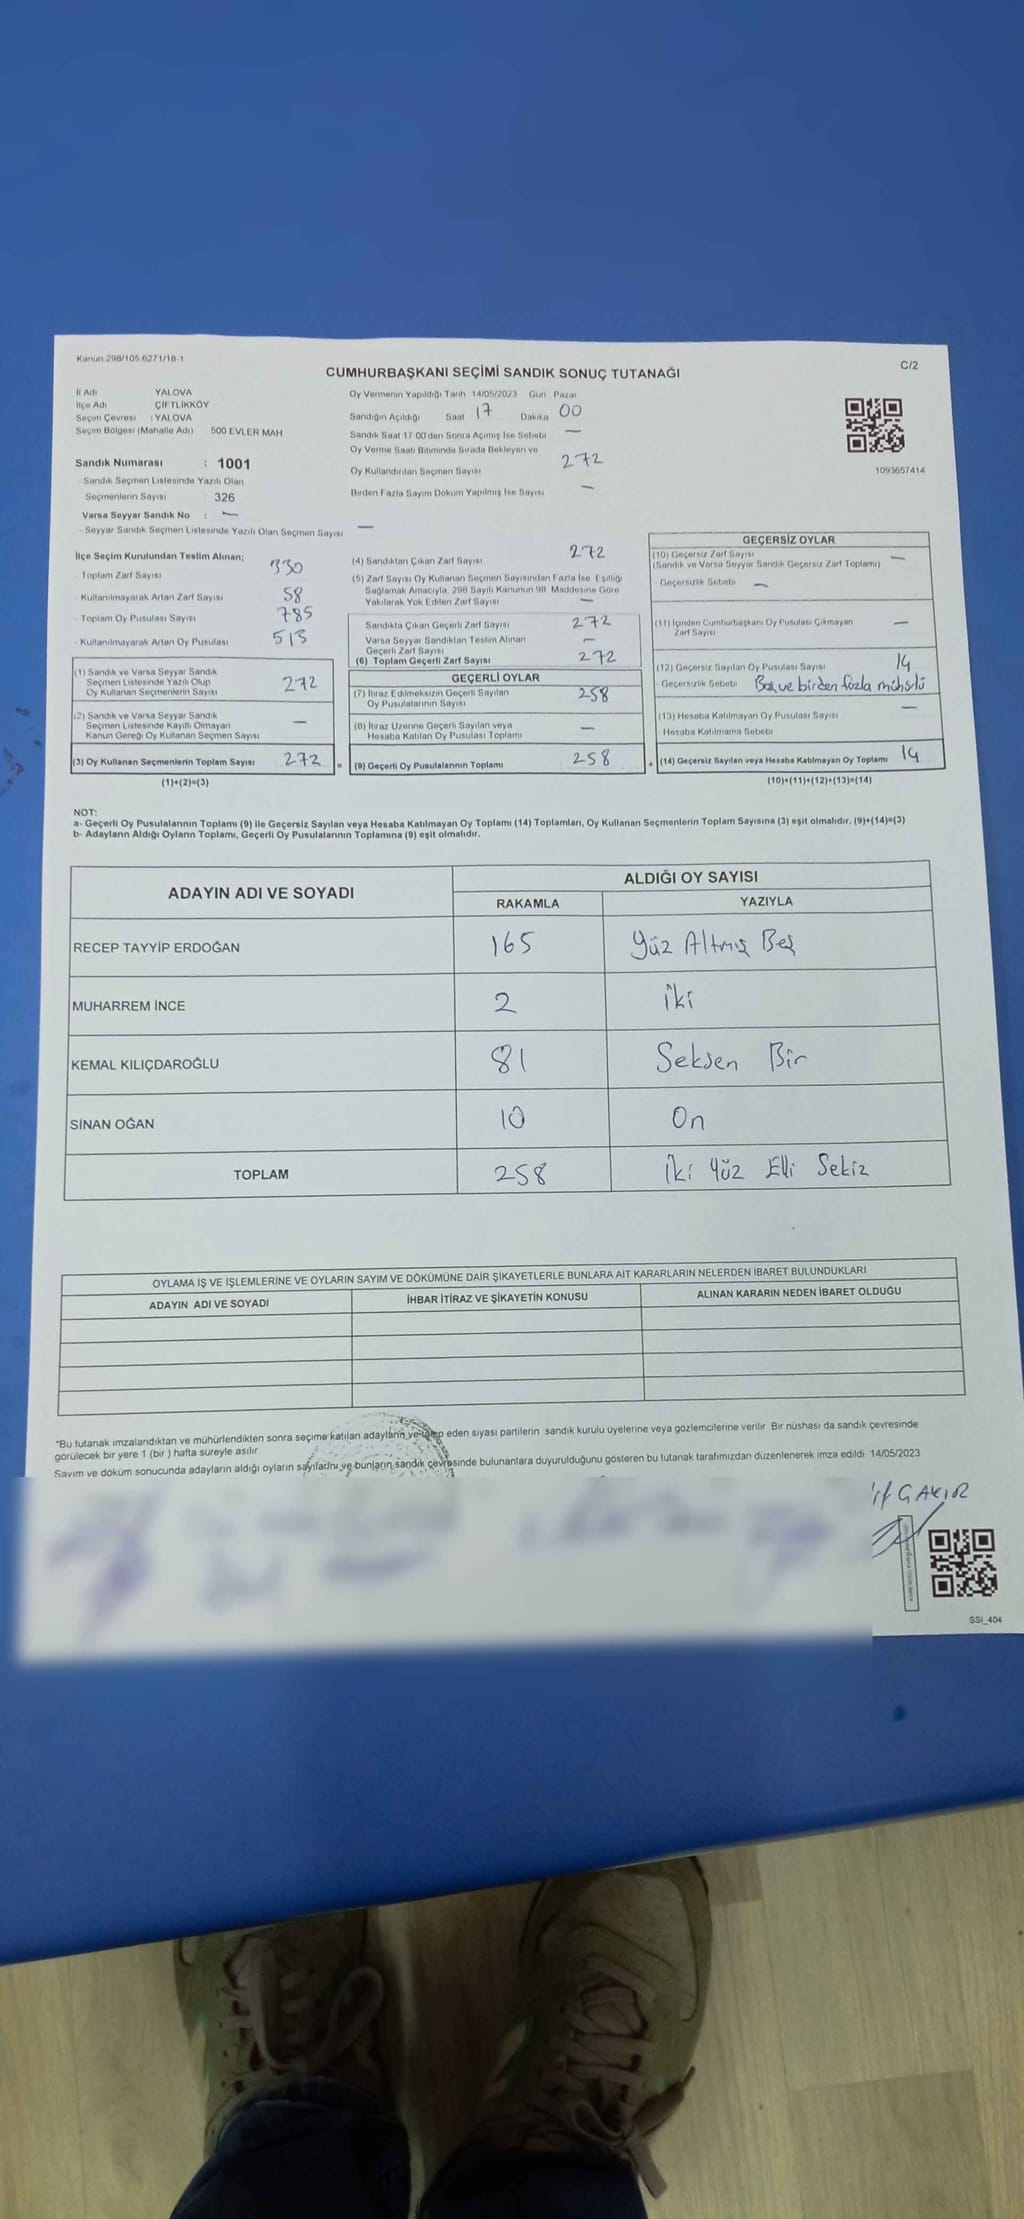 Kanun.298/105.6271/18-1
C/2
CUMHURBAŞKANI SEÇİMİ SANDIK SONUÇ TUTANAĞI
İl Adı YALOVA
İlçe Adı ÇİFTLİKKÖY
Seçim Çevresi : YALOVA
Seçim Bölgesi (Mahalle Adı) 500 EVLER MAH
Sandık Numarası : 1001
Sandık Seçmen Listesinde Yazılı Olan
Seçmenlerin Sayısı : 326
Varsa Seyyar Sandık No : —
- Seyyar Sandık Seçmen Listesinde Yazılı Olan Seçmen Sayısı —
Oy Vermenin Yapıldığı Tarih 14/05/2023 Gün Pazar
Sandığın Açıldığı Saat 17 Dakika 00
Sandık Saat 17 00'den Sonra Açımış İse Sebebi —
Oy Verme Saati Bitiminde Sırada Bekleyen ve
Oy Kullandırılan Seçmen Sayısı 272
Birden Fazla Sayım Döküm Yapılmış İse Sayısı —
1093657414
İlçe Seçim Kurulundan Teslim Alınan;
- Toplam Zarf Sayısı 330
- Kullanılmayarak Artan Zarf Sayısı 58
- Toplam Oy Pusulası Sayısı 785
- Kullanılmayarak Artan Oy Pusulası 513
(1) Sandık ve Varsa Seyyar Sandık
Seçmen Listesinde Yazılı Olup
Oy Kullanan Seçmenlerin Sayısı 272
(2) Sandık ve Varsa Seyyar Sandık
Seçmen Listesinde Kayıtlı Olmayan
Kanun Gereği Oy Kullanan Seçmen Sayısı —
(3) Oy Kullanan Seçmenlerin Toplam Sayısı 272
(1)+(2)=(3)
(4) Sandıktan Çıkan Zarf Sayısı 272
(5) Zarf Sayısı Oy Kullanan Seçmen Sayısından Fazla İse Eşitliği
Sağlamak Amacıyla, 298 Sayılı Kanunun 98. Maddesine Göre
Yakılarak Yok Edilen Zarf Sayısı —
Sandıkta Çıkan Geçerli Zarf Sayısı 272
Varsa Seyyar Sandıktan Teslim Alınan
Geçerli Zarf Sayısı —
(6) Toplam Geçerli Zarf Sayısı 272
GEÇERLİ OYLAR
(7) İtiraz Edilmeksizin Geçerli Sayılan
Oy Pusulalarının Sayısı 258
(8) İtiraz Üzerine Geçerli Sayılan veya
Hesaba Katılan Oy Pusulası Toplamı —
= (9) Geçerli Oy Pusulalarının Toplamı 258
GEÇERSİZ OYLAR
(10) Geçersiz Zarf Sayısı —
(Sandık ve Varsa Seyyar Sandık Geçersiz Zarf Toplamı)
- Geçersizlik Sebebi —
(11) İçinden Cumhurbaşkanı Oy Pusulası Çıkmayan
Zarf Sayısı —
(12) Geçersiz Sayılan Oy Pusulası Sayısı 14
- Geçersizlik Sebebi Boş ve birden fazla mühürlü
(13) Hesaba Katılmayan Oy Pusulası Sayısı —
- Hesaba Katılmama Sebebi
+ (14) Geçersiz Sayılan veya Hesaba Katılmayan Oy Toplamı 14
(10)+(11)+(12)+(13)=(14)
NOT:
a- Geçerli Oy Pusulalarının Toplamı (9) ile Geçersiz Sayılan veya Hesaba Katılmayan Oy Toplamı (14) Toplamları, Oy Kullanan Seçmenlerin Toplam Sayısına (3) eşit olmalıdır. (9)+(14)=(3)
b- Adayların Aldığı Oyların Toplamı, Geçerli Oy Pusulalarının Toplamına (9) eşit olmalıdır.
ADAYIN ADI VE SOYADI
ALDIĞI OY SAYISI
RAKAMLA YAZIYLA
RECEP TAYYİP ERDOĞAN 165 Yüz Altmış Beş
MUHARREM İNCE 2 İki
KEMAL KILIÇDAROĞLU 81 Seksen Bir
SİNAN OĞAN 10 On
TOPLAM 258 İki Yüz Elli Sekiz
OYLAMA İŞ VE İŞLEMLERİNE VE OYLARIN SAYIM VE DÖKÜMÜNE DAİR ŞİKAYETLERLE BUNLARA AİT KARARLARIN NELERDEN İBARET BULUNDUKLARI
ADAYIN ADI VE SOYADI İHBAR İTİRAZ VE ŞİKAYETİN KONUSU ALINAN KARARIN NEDEN İBARET OLDUĞU
"Bu tutanak imzalandıktan ve mühürlendikten sonra seçime katılan adayların ve talep eden siyasi partilerin sandık kurulu üyelerine veya gözlemcilerine verilir Bir nüshası da sandık çevresinde
görülecek bir yere 1 (bir ) hafta süreyle asılır
Sayım ve döküm sonucunda adayların aldığı oyların sayılarını ve bunların sandık çevresinde bulunanlara duyurulduğunu gösteren bu tutanak tarafımızdan düzenlenerek imza edildi 14/05/2023
ÇAKIR
SSI_404